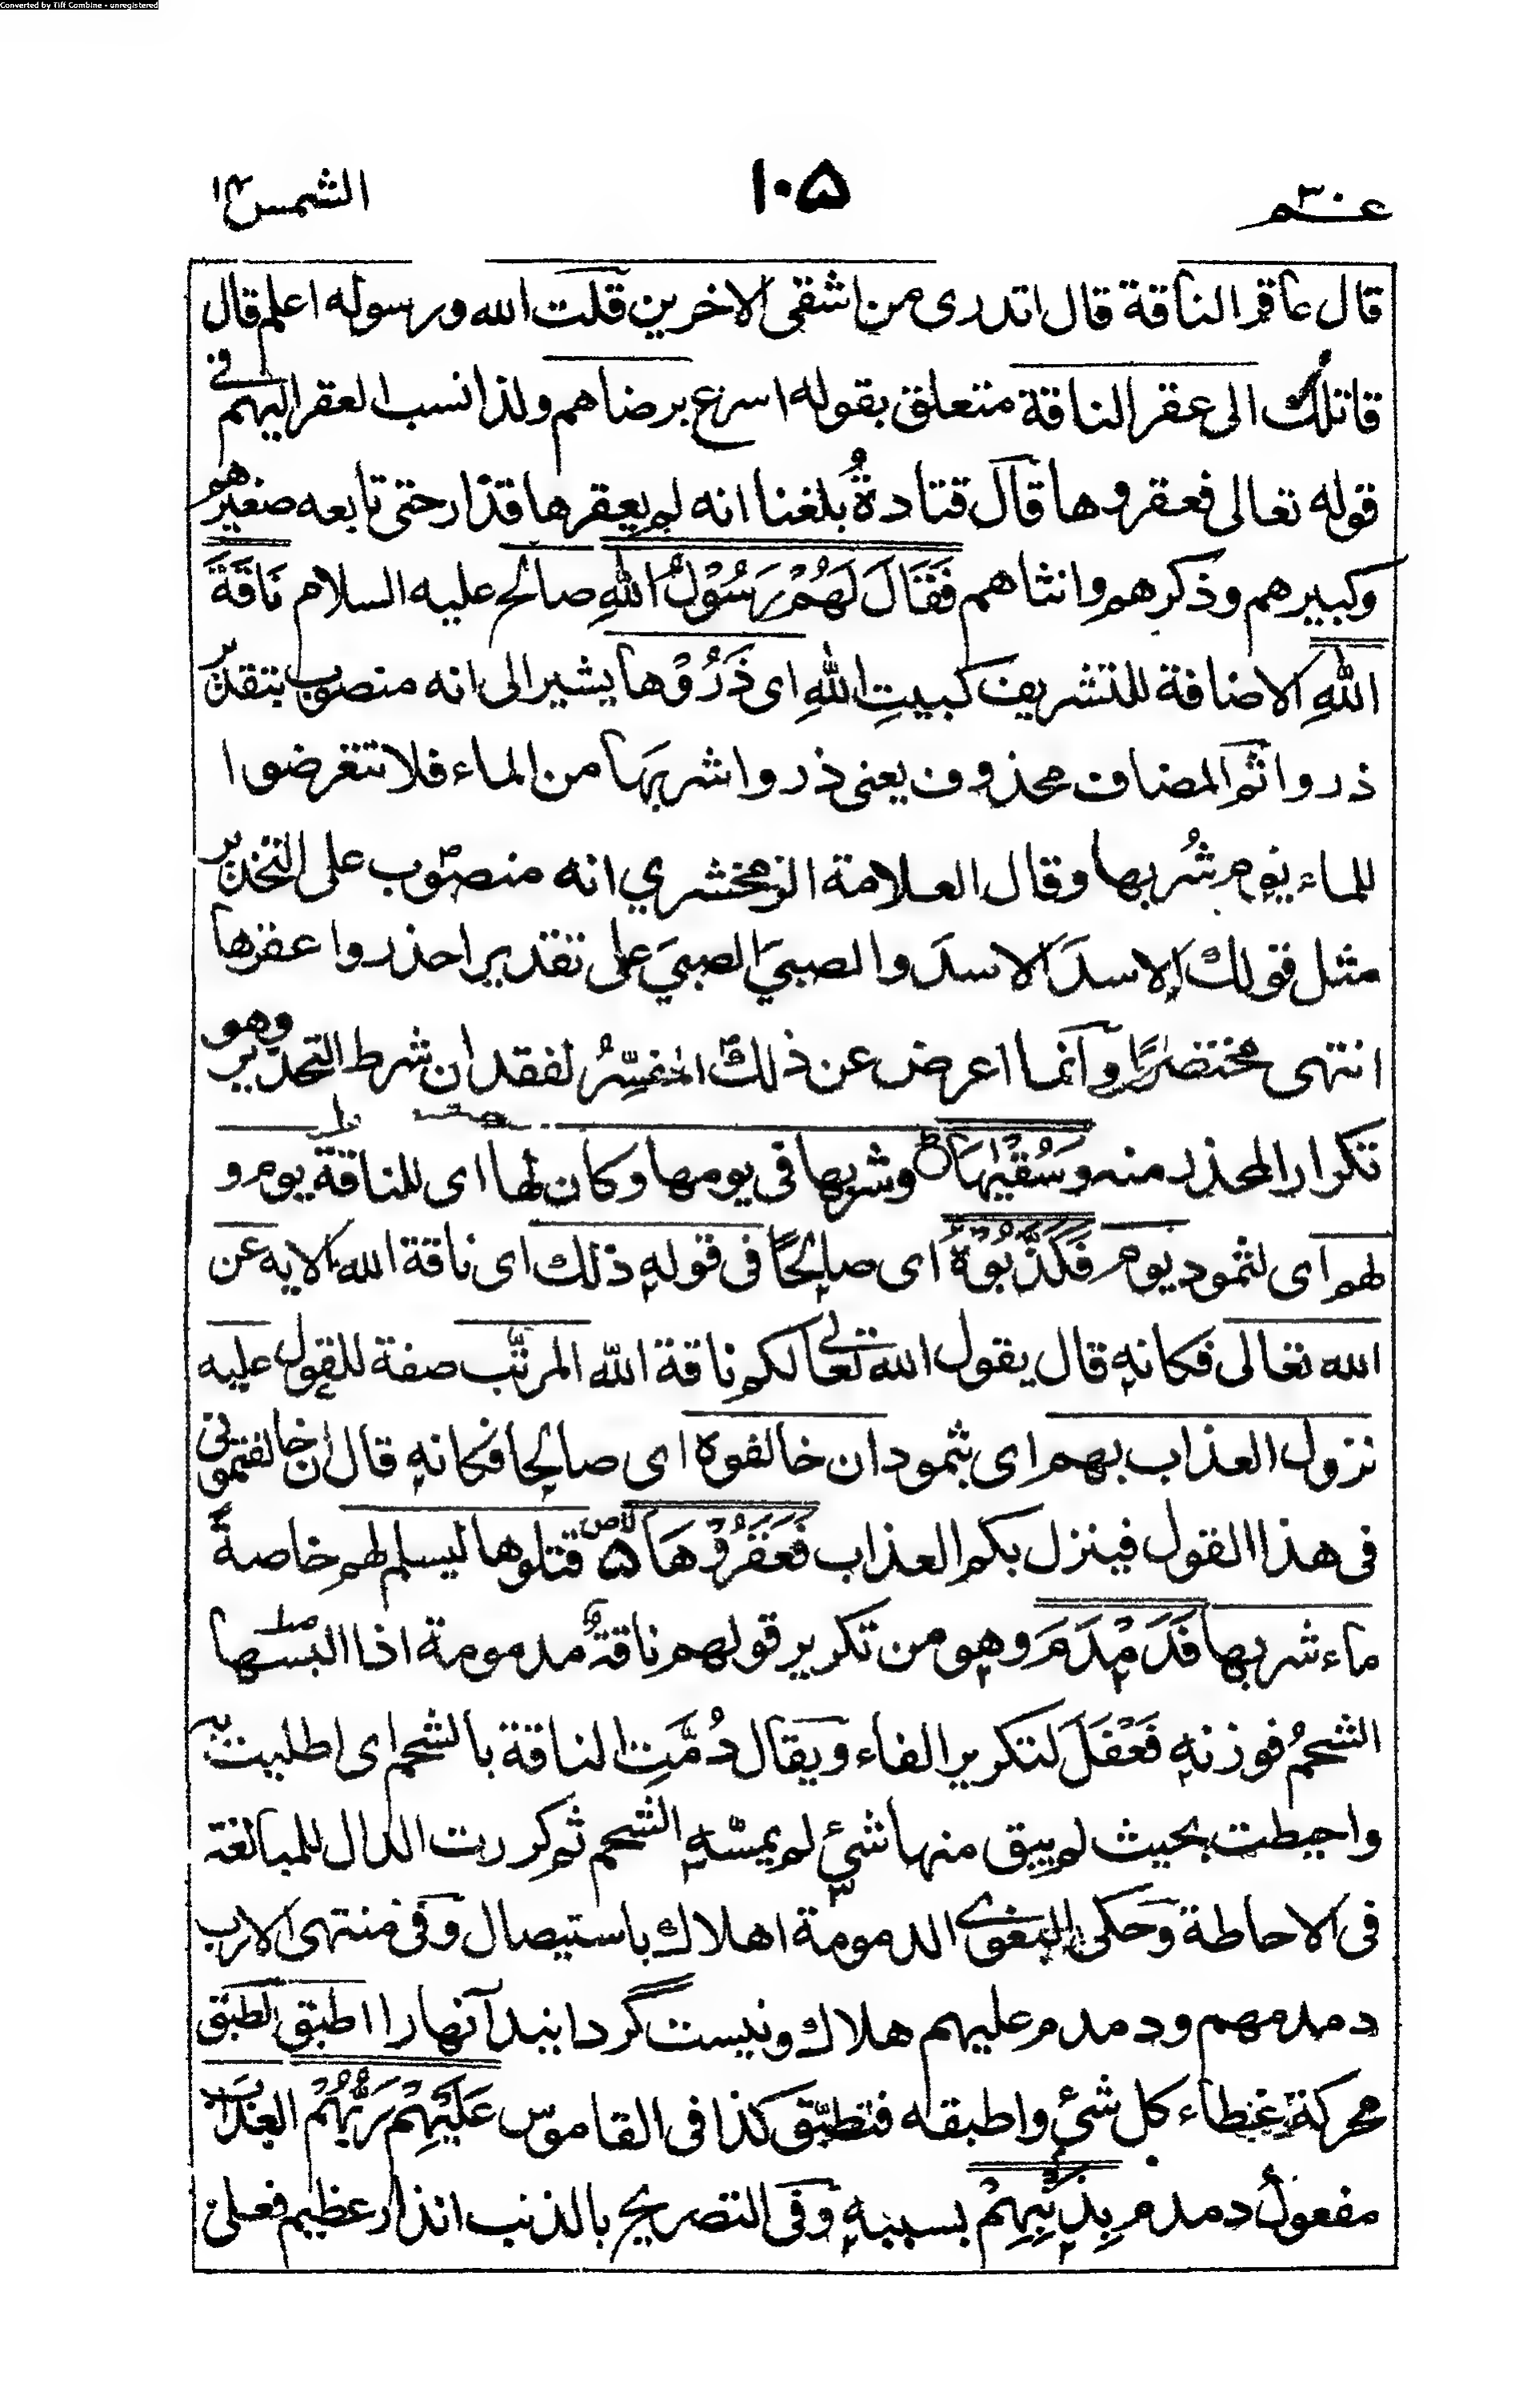 Converted by Tiff Combine - unregistered
عـــم ٣٠
١٠٥
الشمس ٩١
قال عاقر الناقة قال اتدرى من اشقى الاخرين قلت الله ورسوله اعلم قال
قاتلك الى عقر الناقة متعلق بقوله اسرع برضاهم ولذا نسب العقر اليهم فى
قوله تعالى فعقروها قال قتادةُ بلغنا انه لم يعقرها قذار حتى تابعه صغيرهم
وكبيرهم وذكرهم وانثاهم فَقَالَ لَهُمْ رَسُوْلُ اللهِ صالح عليه السلام نَاقَةَ
اللهِ الاضافة للتشريف كبيتِ اللهِ اى ذَرُوْها يشير الى انه منصوب بتقدير
ذروا ثم المضاف محذوف يعنى ذروا شربَها من الماء فلا تتعرضوا
للماء يوم شُربها وقال العلامة الزمخشري انه منصوب على التحذير
مثل قولك الاسدَ الاسدَ والصبيَ الصبيَ على تقدير احذروا عقرها
انتهى مختصرًا وانما اعرض عن ذلك المفسّرُ لفقدان شرط التحذير وهو
تكرار المحذر منه وَسُقْيٰهَا وشربها فى يومها وكان لها اى للناقة يوم و
لهم اى لثمود يوم فَكَذَّبُوْهُ اى صالحًا فى قوله ذلك اى ناقة الله الايه عن
الله تعالى فكانه قال يقول الله تعالى لكم ناقة الله المرتَّب صفة للقول عليه
نزول العذاب بهم اى بثمود ان خالفوه اى صالحا فكانه قال ان خالفتمونى
فى هذا القول فينزل بكم العذاب فَعَقَرُوْهَا ۵ قتلوها ليسلم لهم خاصةً
ماء شربها فَدَمْدَمَ وهو من تكرير قولهم ناقة مدمومة اذا البسها
الشحمُ فوزنه فَعْفَلَ لتكرير الفاء ويقال دُمَّتِ الناقة بالشحم اى اطليت به
واحيطت بحيث لم يبق منها شئ لم يمسّه الشحم ثم كررت الدال للمبالغة
فى الاحاطة وحكى البغوى الدمومة اهلاك باستيصال وفى منتهى الارب
دمدمهم ودمدم عليهم هلاك ونيست گردانيد آنها را اطبق الطبق
محركة غطاء كل شئ واطبقه فتطبّق كذا فى القاموس عَلَيْهِمْ رَبُّهُمْ العذابَ
مفعول دمدم بِذَنْبِهِمْ بسببه وفى التصريح بالذنب انذار عظيم فعلى